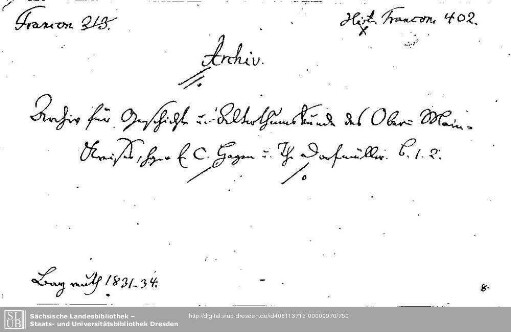 Francon 213.
Hist. Francon. 402.
Archiv.
Archiv für Geschichte u. Alterthumskunde des Ober-Main-
Kreises, hgg. E. C. Hagen u. Th. Dorfmüller. B. 1. 2.
Bayreuth 1831-34.
8.
SLUB
Sächsische Landesbibliothek –
Staats- und Universitätsbibliothek Dresden